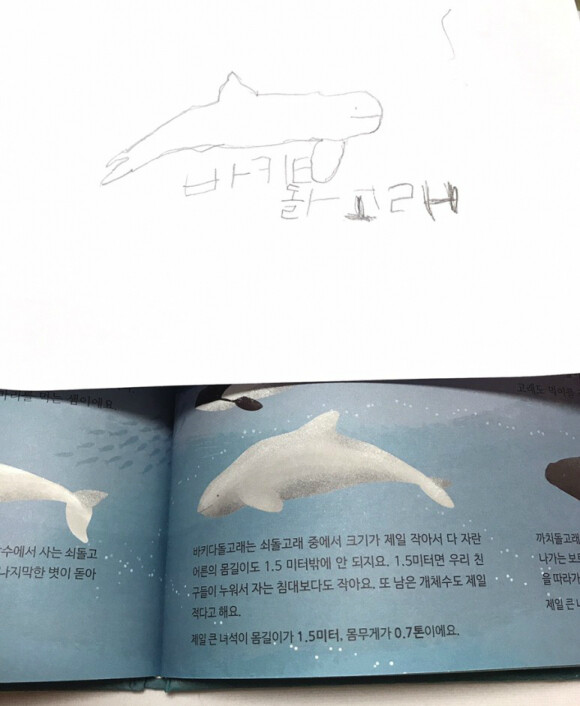 바키ㅌ
돌ㅏ고래
먹는 셈이에요
고래도
수에서 사는 쇠돌고
나지막한 볏이 돋아
바키다돌고래는 쇠돌고래 중에서 크기가 제일 작아서 다 자란
어른의 몸길이도 1.5 미터밖에 안 되지요. 1.5미터면 우리 친
구들이 누워서 자는 침대보다도 작아요. 또 남은 개체수도 제일
적다고 해요.
제일 큰 녀석이 몸길이가 1.5미터, 몸무게가 0.7톤이에요.
까치돌고래
나가는 보트
을 따라가
제일 큰 녀